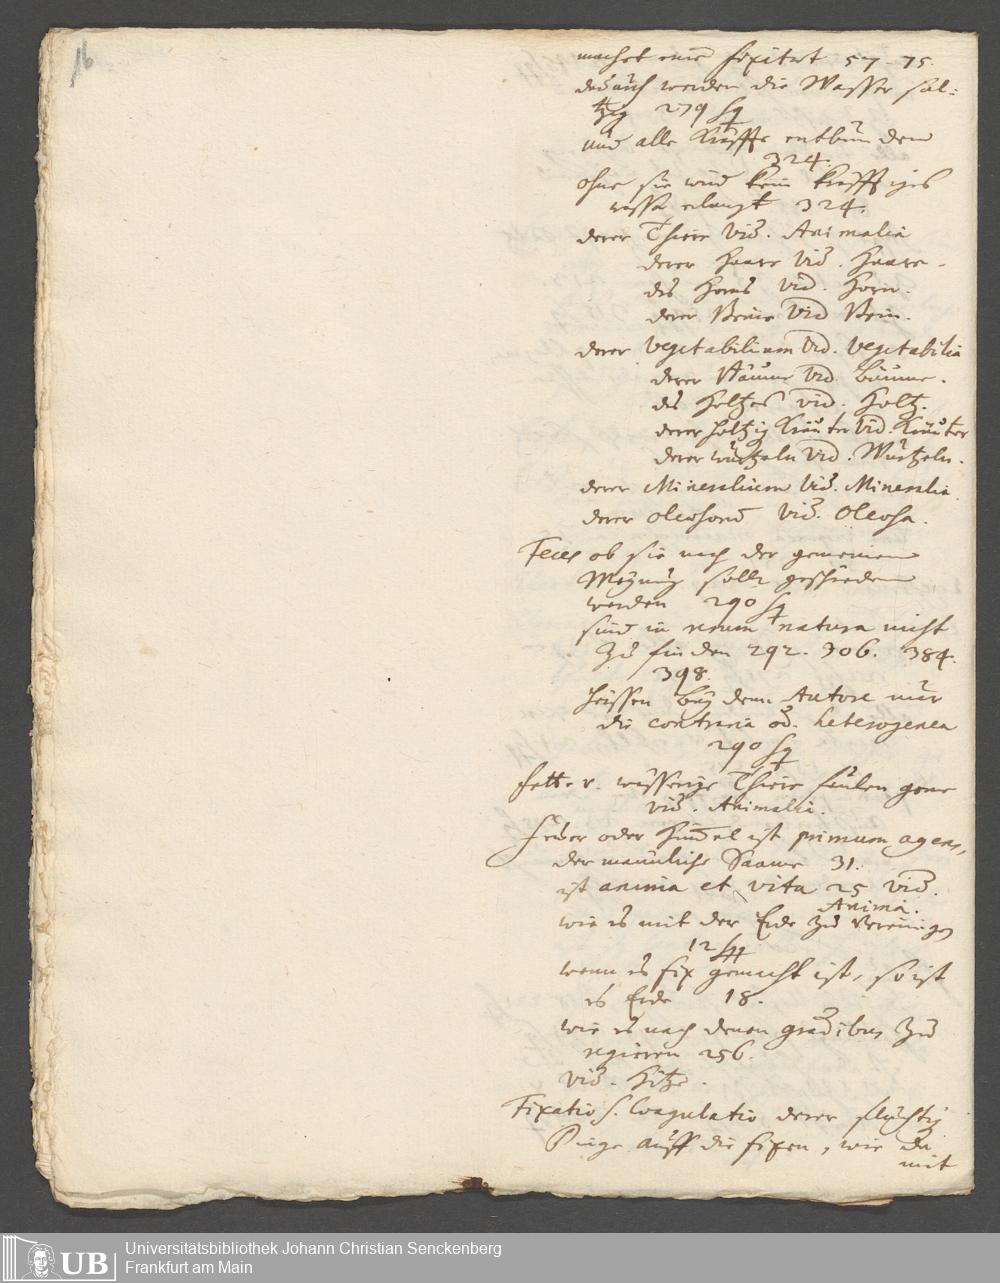 16
machet eine fixitet 57. 75.
dadurch werden die Wasser sal=
tzig 279 sq
und alle Kräffte entbunden
324.
ohne sie wird kein kräfftiges
wasser erlangt 324.
derer Thiere vid. Animalia
derer Haare vid. Haare.
des Horns vid. Horn.
derer Beine vid Bein.
derer Vegetabilium vid. Vegetabilia
derer Bäume vid. Bäume.
des Holtzes vid. Holtz.
derer holtzig Kräuter vid. Kräuter
derer Wurtzeln vid. Wurtzeln.
derer Mineralium vid. Mineralia
derer oleosorum vid. Oleosa.
Feces ob sie nach der gemeinen
Meynung sollen geschieden
werden 290 sq
sind in rerum natura nicht
zu finden 292. 306. 384.
398.
heissen bey dem Autore nur
die contraria od. heterogenea
290 sq
fette v. wässerige Thiere faulen gerne
vid. Animalia.
Feuer oder Himmel ist primum agens,
der männliche Saame 31.
ist anima et vita 25 vid.
Anima.
wie es mit der Erde zu vereinigen
12 sqq
wenn es fix gemacht ist, so ist
es Erde 18.
wie es nach denen gradibus zu
regieren 256.
vid. Hitze.
Fixatio s. Coagulatio derer flüchtig
Dinge auff die fixen, wie da
mit
Universitätsbibliothek Johann Christian Senckenberg
Frankfurt am Main
UB